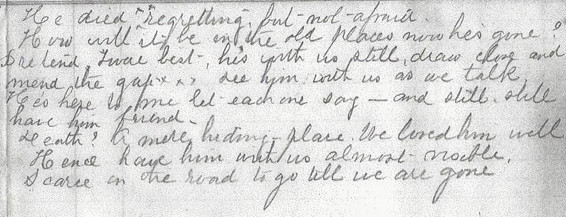 He died "regretting, but not afraid.
How will it be in the old places now he's gone?
Pretend, 'twere best, he's with us still, draw close and
mend the gap x x x see him with us as we talk,
He's here to me let each one say — and still, still
have him friend.
Death? A mere hiding-place. We loved him well
Hence have him with us almost visible,
Scarce on the road to go till we are gone